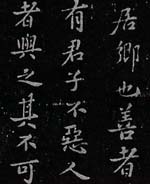 居鄉也善者
有君子不惡人
者與之其不可